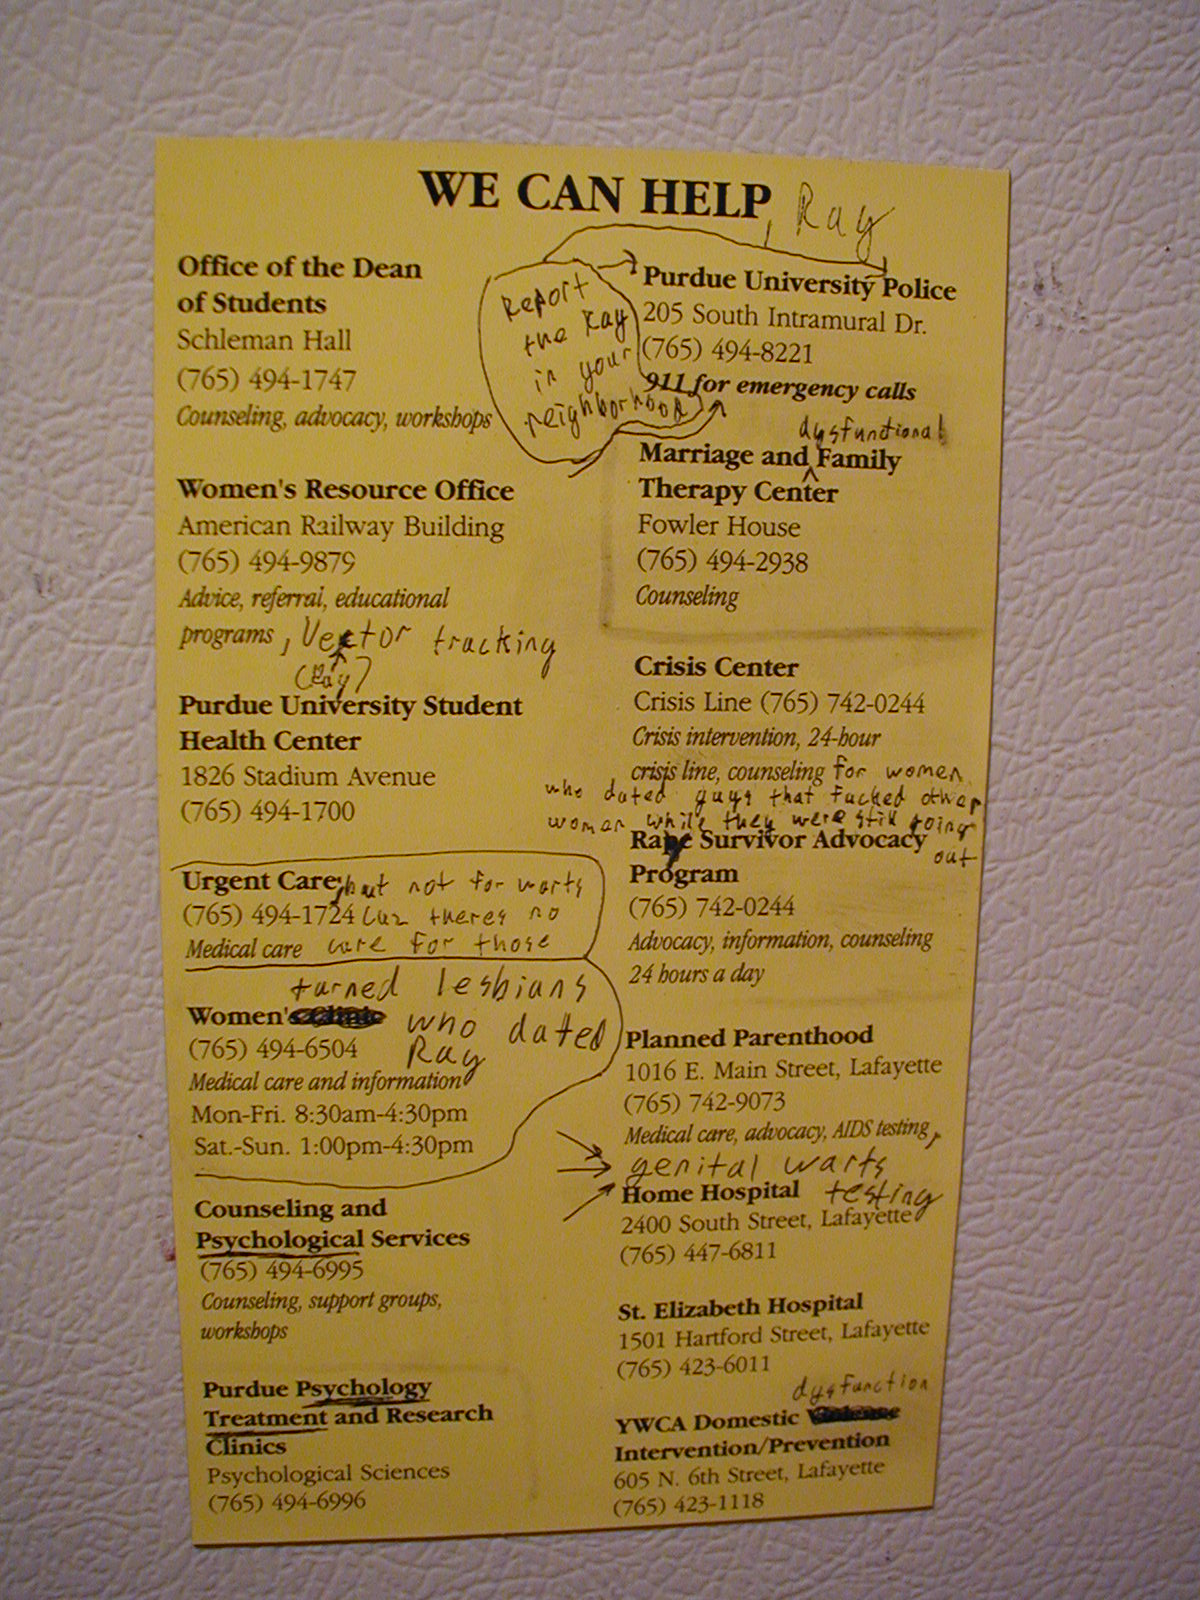 WE CAN HELP, Ray
Office of the Dean
of Students
Schleman Hall
(765) 494-1747
Counseling, advocacy, workshops
Women's Resource Office
American Railway Building
(765) 494-9879
Advice, referral, educational
programs, Vector tracking
(Ray)
Purdue University Student
Health Center
1826 Stadium Avenue
(765) 494-1700
Urgent Care, but not for warts
(765) 494-1724 cuz theres no
Medical care care for those
turned lesbians
Women's Clinic who dated
(765) 494-6504 Ray
Medical care and information
Mon-Fri. 8:30am-4:30pm
Sat.-Sun. 1:00pm-4:30pm
Counseling and
Psychological Services
(765) 494-6995
Counseling, support groups,
workshops
Purdue Psychology
Treatment and Research
Clinics
Psychological Sciences
(765) 494-6996
Report
the Ray
in your
neighborhood
Purdue University Police
205 South Intramural Dr.
(765) 494-8221
911 for emergency calls
dysfunctional
Marriage and Family
Therapy Center
Fowler House
(765) 494-2938
Counseling
Crisis Center
Crisis Line (765) 742-0244
Crisis intervention, 24-hour
crisis line, counseling for women
who dated guys that fucked other
women while they were still going
out
Raye Survivor Advocacy
Program
(765) 742-0244
Advocacy, information, counseling
24 hours a day
Planned Parenthood
1016 E. Main Street, Lafayette
(765) 742-9073
Medical care, advocacy, AIDS testing,
genital warts
testing
Home Hospital
2400 South Street, Lafayette
(765) 447-6811
St. Elizabeth Hospital
1501 Hartford Street, Lafayette
(765) 423-6011
dysfunction
YWCA Domestic Violence
Intervention/Prevention
605 N. 6th Street, Lafayette
(765) 423-1118